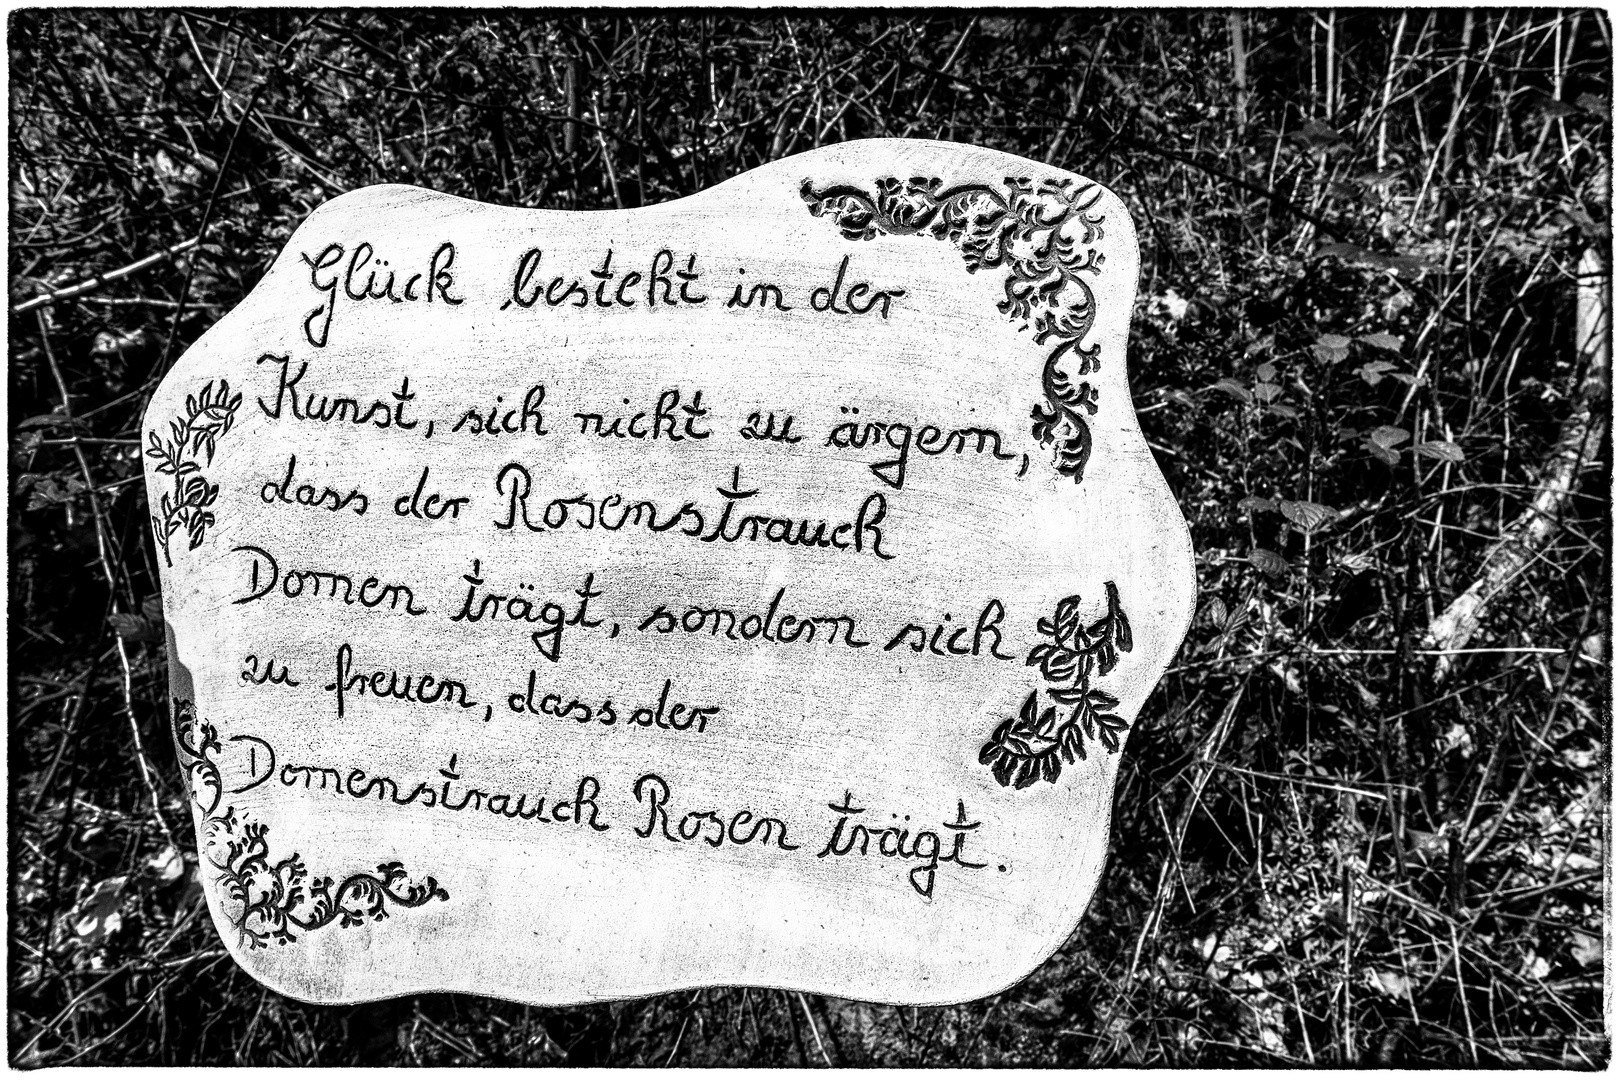 Glück besteht in der
Kunst, sich nicht zu ärgern,
dass der Rosenstrauch
Dornen trägt, sondern sich
zu freuen, dass der
Dornenstrauch Rosen trägt.